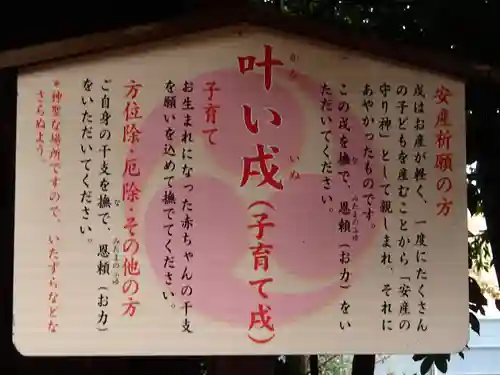 叶い戌(子育て戌)
かな
いぬ
安産祈願の方
戌はお産が軽く、一度にたくさん
の子どもを産むことから「安産の
守り神」として親しまれ、それに
あやかったものです。
この戌を撫で、恩頼(お力)をい
な
みたまのふゆ
ただいてください。
子育て
お生まれになった赤ちゃんの干支
を願いを込めて撫でてください。
方位除・厄除・その他の方
ご自身の干支を撫で、恩頼(お力)
な
みたまのふゆ
をいただいてください。
*神聖な場所ですので、いたずらなどな
さらぬよう。